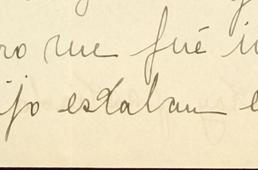 ro me fué i
ijo estaban e